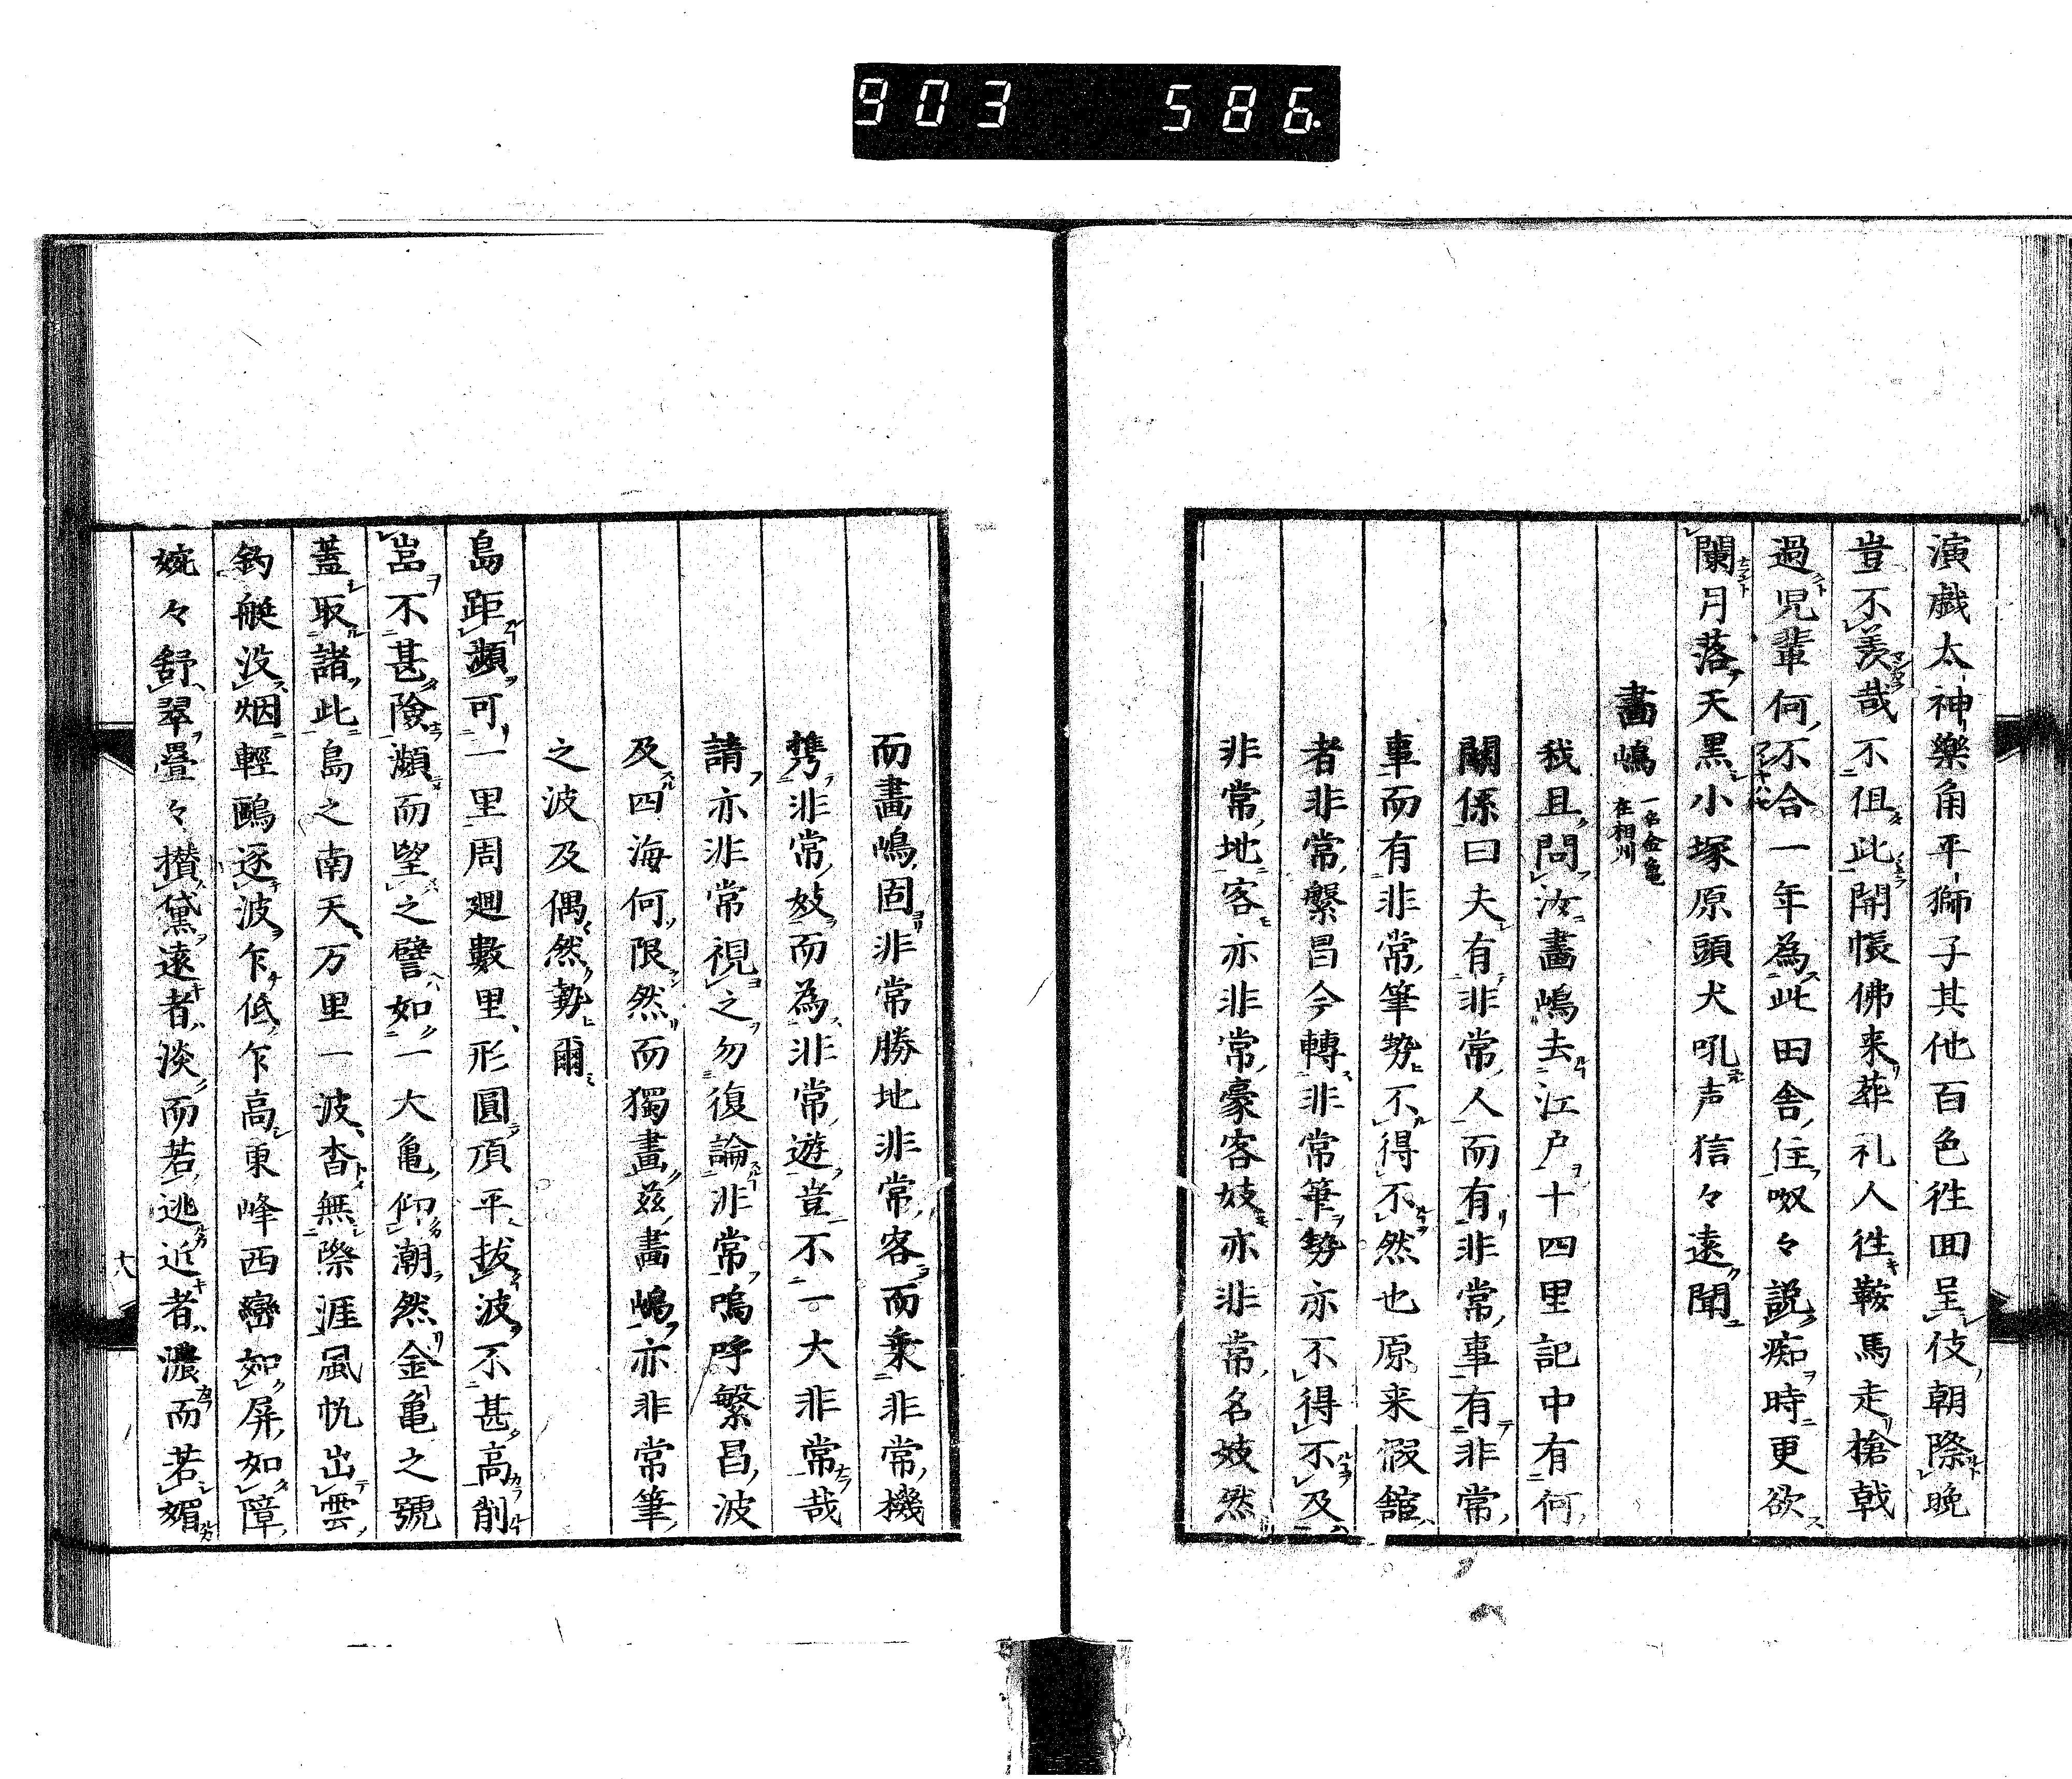 903 586.
演戯太神樂角平獅子其他百色徃囬呈伎朝際晩
豈不羨哉不徂此開帳佛来葬礼人徃鞍馬走槍戟
過児輩何不合一年為此田舎住呶々説痴時更欲
闌月落天黒小塚原頭犬吼声信々遠聞
畵嶋 一名金亀 在相州
我且問汝畵嶋去江戸十四里記中有何
關係曰夫有非常人而有非常事有非常
事而有非常筆勢不得不然也原来假舘
者非常繁昌今轉非常筆勢亦不得不及
非常地客亦非常豪客妓亦非常名妓然
而畵嶋固非常勝地非常客而乗非常機
携非常妓而為非常遊豈不一大非常哉
請亦非常視之勿復論非常嗚呼繁昌波
及四海何限然而獨畫茲畵嶋亦非常筆
之波及偶然勢爾
島距瀕可一里周廻數里形圓頂平拔波不甚高削
嵓不甚險瀕而望之譬如一大亀仰潮然金亀之號
蓋取諸此島之南天万里一波杳無際涯風帆出雲
釣艇没烟輕鷗逐波乍低乍高東峰西巒如屏如障
婉々舒翠疊々攅黛遠者淡而若逃近者濃而若媚
十八